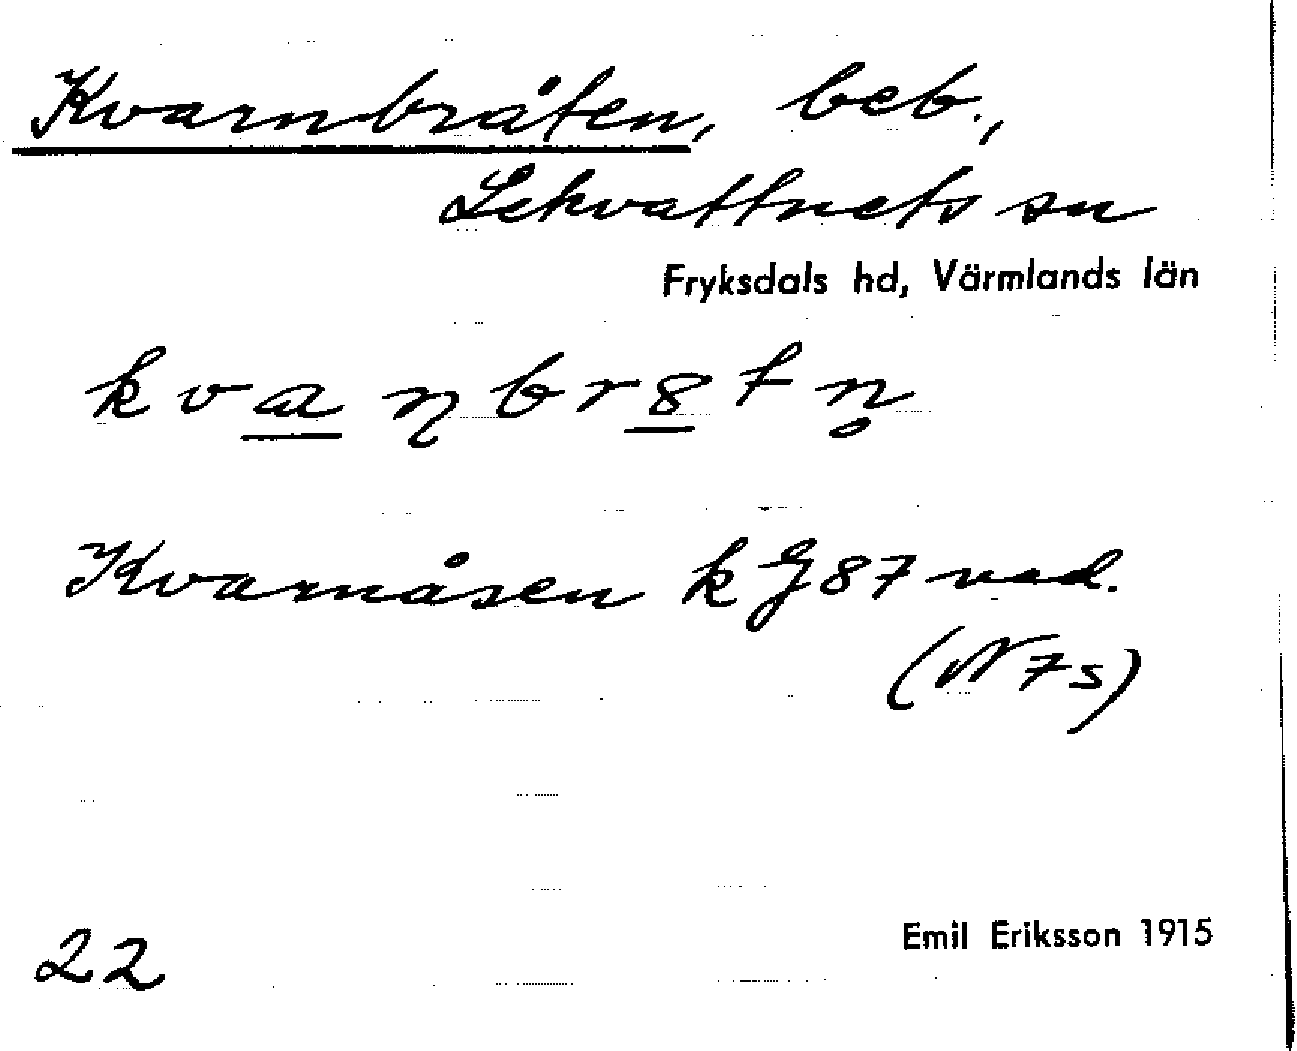 Kvarnbråten, beb.,
Lekvattnets sn
Fryksdals hd, Värmlands län
k v a ɳ b r 8 t n̥
Kvarnåsen k G 87 red.
(N 7s)
22
Emil Eriksson 1915